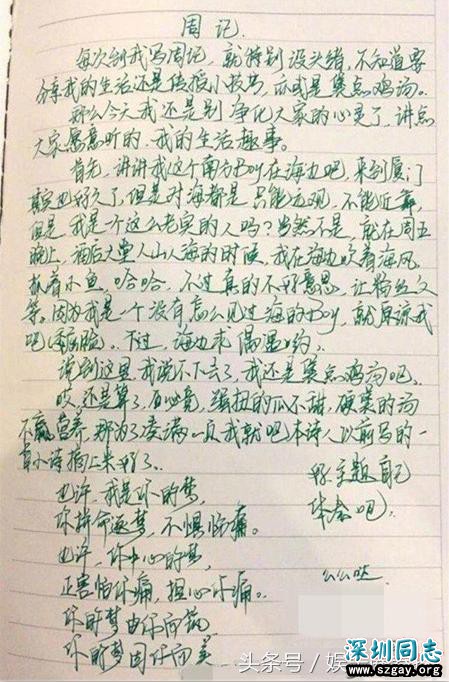 周记.
每次到我写周记,就特别没头绪,不知道要
分享我的生活还是传授小技巧,亦或是煲点鸡汤。
那么今天我还是别净化大家的心灵了,讲点
大家愿意听的,我的生活趣事。
首先,讲讲我这个南方Boy在海边吧,来到厦门
其实也好久了,但是对海都是只能远观,不能近靠,
但是我是个这么老实的人吗?当然不是,就在周五
晚上,酒后大堂人山人海的时候,我在海边吹着海风,
抓着小鱼,哈哈,不过真的不好意思,让粉丝久
等。因为我是一个没有怎么见过海的Boy,就原谅我
吧,不过,海边求偶遇哟。
说到这里,我说不下去了,我还是煲点鸡汤吧。
哎,还是算了,毕竟,强扭的瓜不甜,硬煲的汤
不营养,那为了凑满一页我就吧本诗人以前写的一
首小诗摘上来好了。
也许,我是你的梦,
你拼命逐梦,不惧伤痛。
也许,你中心的梦,
正害怕你痛,担心你痛。
你的梦由你而筑
你的梦因你而美
好主题自己
体会吧。
么么哒
头条号/娱
深圳同志
www.szgay.org